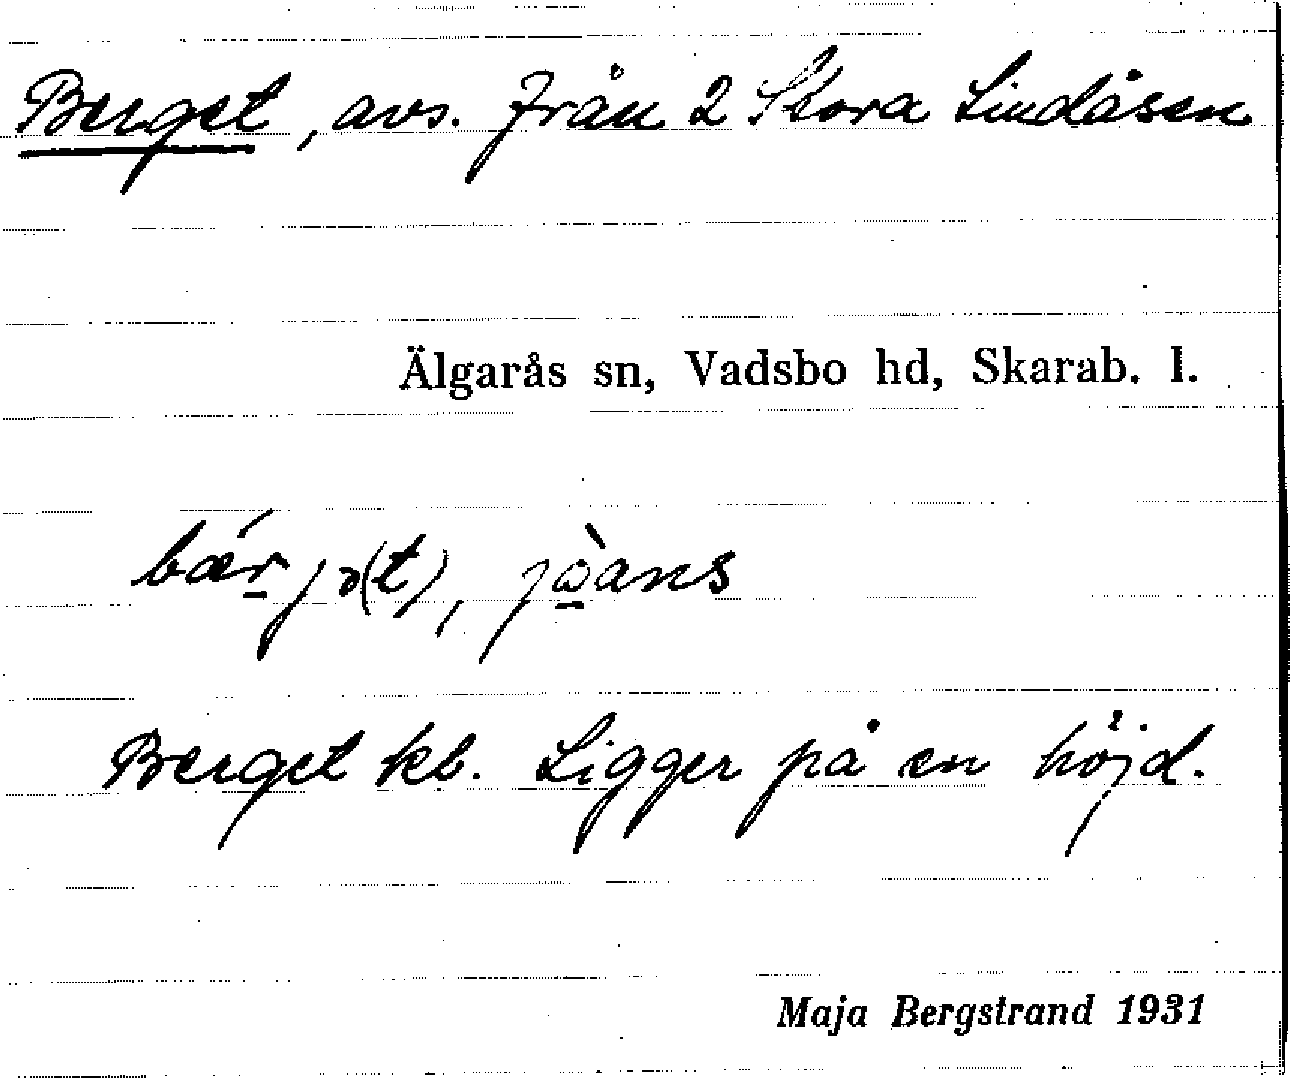 Berget, avs. från 2 Stora Lindåsen
Älgarås sn, Vadsbo hd, Skarab. l.
bæŕ̲jə(t), jò̲ans
Berget kb. Ligger på en höjd.
Maja Bergstrand 1931